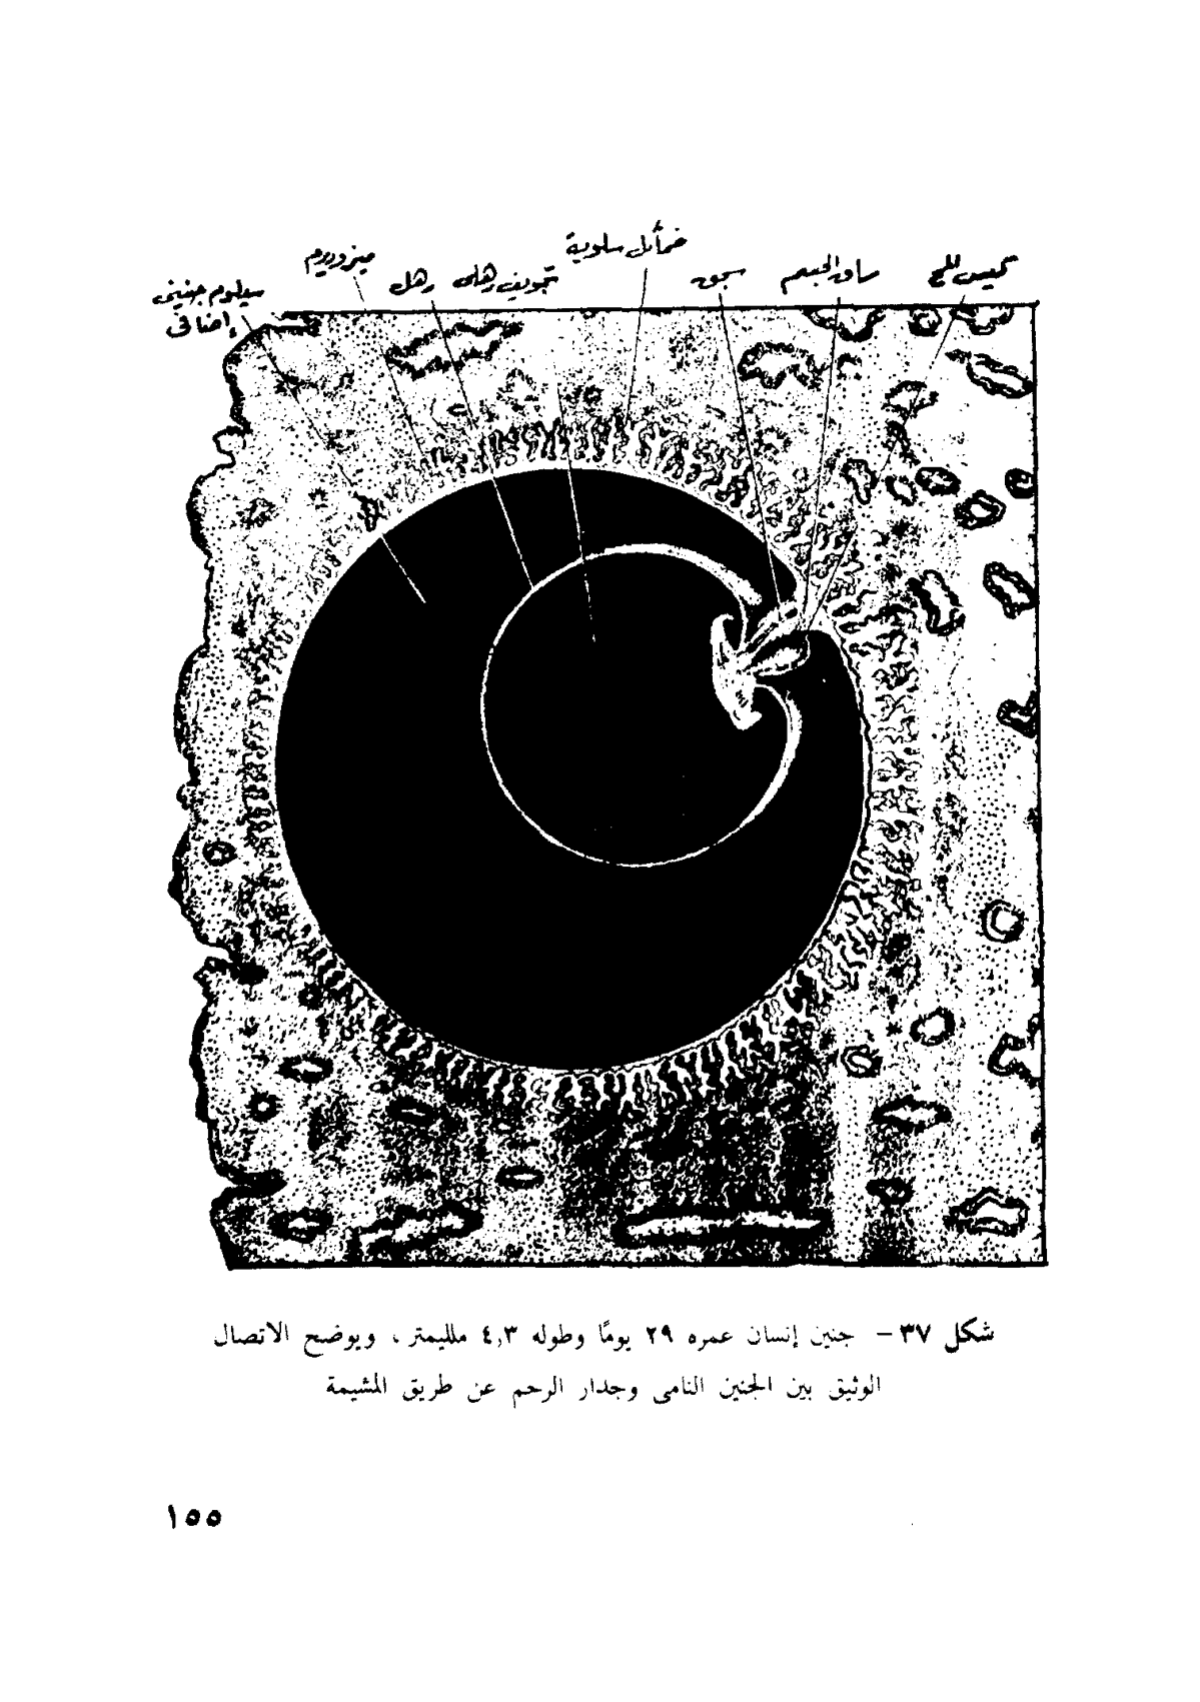 كيس المح
ساق الجسم
سجق
خمائل سلوية
تجويف رهلى
رهل
ميزوديرم
سيلوم جنينى
إضافى
شكل ٣٧ – جنين إنسان عمره ٢٩ يومًا وطوله ٤,٣ ملليمتر ، ويوضح الاتصال
الوثيق بين الجنين النامى وجدار الرحم عن طريق المشيمة
١٥٥